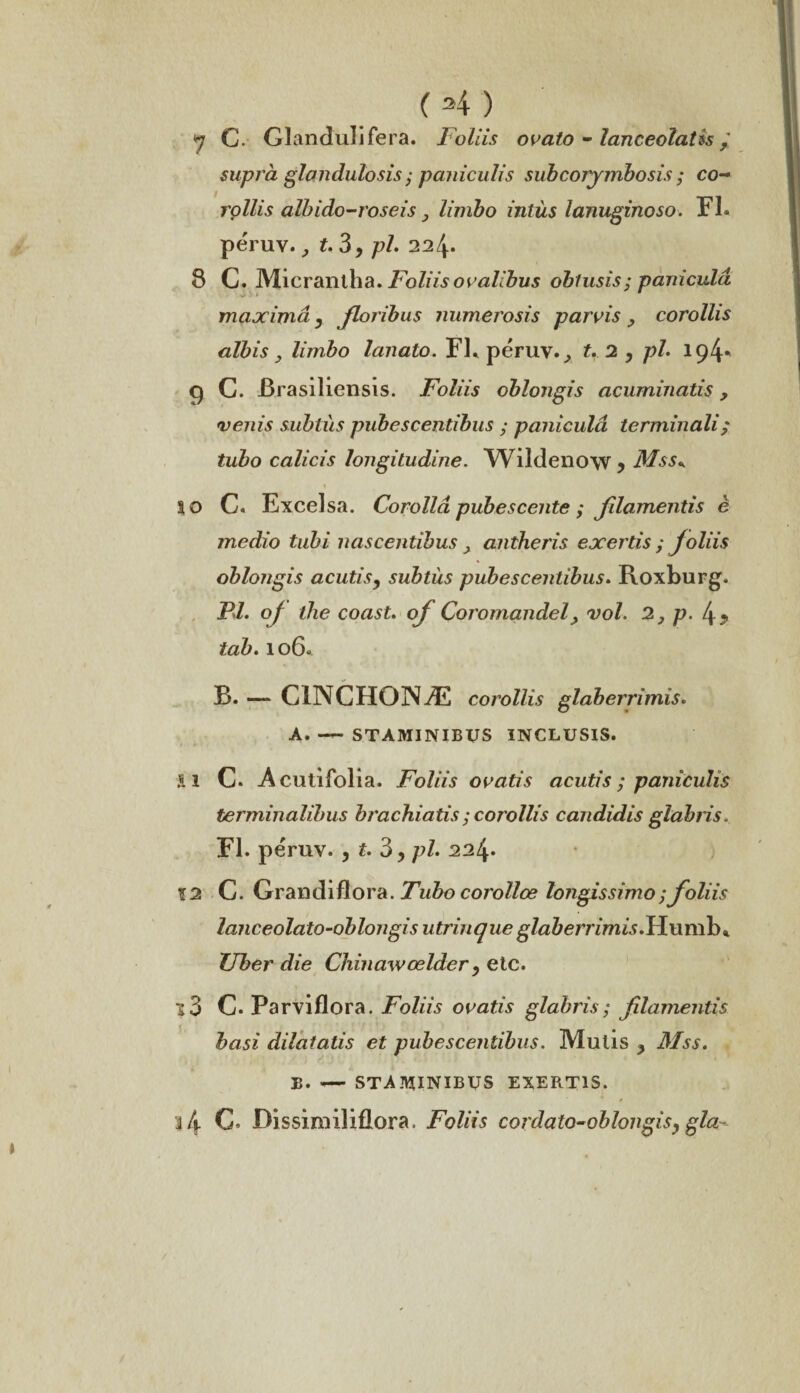 ( 24 )
7 C. Glandulifera. Foliis ovato - lanceolatis ;
suprà glandulosis ; paniculis subcorymbosis ; co-
rollis albido-roseis , limbo intùs lanuginoso. Fl.
péruv. , t. 3, pl. 224.
8 C. Micrantha. Foliis ovalibus obtusis ; paniculâ
maximâ , floribus numerosis parvis , corollis
albis , limbo lanato. Fl. péruv. , t. 2 , pl. 194.
9 C. Brasiliensis. Foliis oblongis acuminatis ,
venis subtùs pubescentibus ; paniculâ terminali ;
tubo calicis longitudine. Wildenow , Mss.
10 C. Excelsa. Corollâ pubescente ; filamentis è
medio tubi nascentibus , antheris exertis ; foliis
oblongis acutis, subtùs pubescentibus. Roxburg.
Pl. of the coast. of Coromandel, vol. 2, p. 4,
tab. 106.
B. — CINCHONÆ corollis glaberrimis.
A. — STAMINIBUS INCLUSIS.
11 C. Acutifolia. Foliis ovatis acutis ; paniculis
terminalibus brachiatis ; corollis candidis glabris.
Fl. péruv. , t. 3, pl. 224.
12 C. Grandiflora. Tubo corollœ longissimo ; foliis
lanceolato-oblongis utrinque glaberrimis. Humb.
Uber die Chinawœlder, etc.
13 C. Parviflora. Foliis ovatis glabris ; filamentis
basi dilatatis et pubescentibus. Mutis , Mss.
B. — STAMINIBUS EXERTIS.
14 C. Dissimiliflora. Foliis cordato-oblongis, gla-